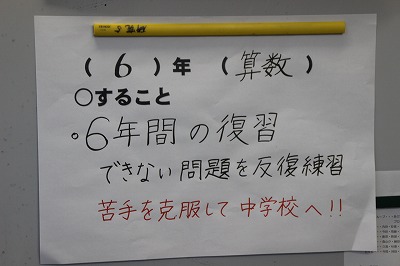 (6)年 (算数)
○すること
。6年間の復習
できない問題を反復練習
苦手を克服して中学校へ!!